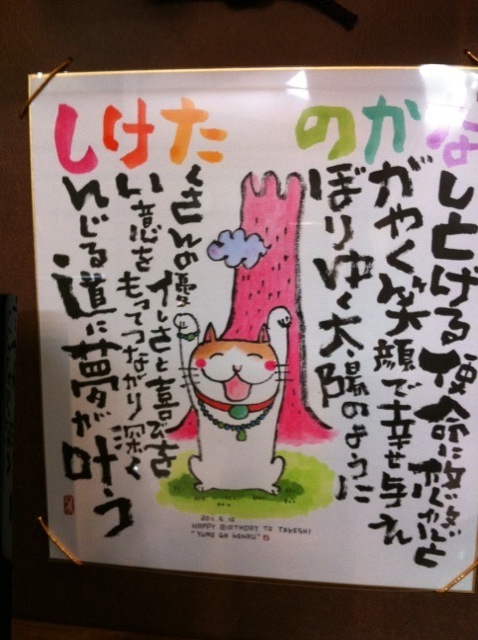 なしとげる使命に悠悠と
かがやく笑顔で幸せ与え
のぼりゆく太陽のように
たくさんの優しさと喜びを
けい意をもってつながり深く
しんじる道に夢が叶う
2011.5.10
HAPPY BIRTHDAY TO TAKESHI
"YUME GA KANAU"